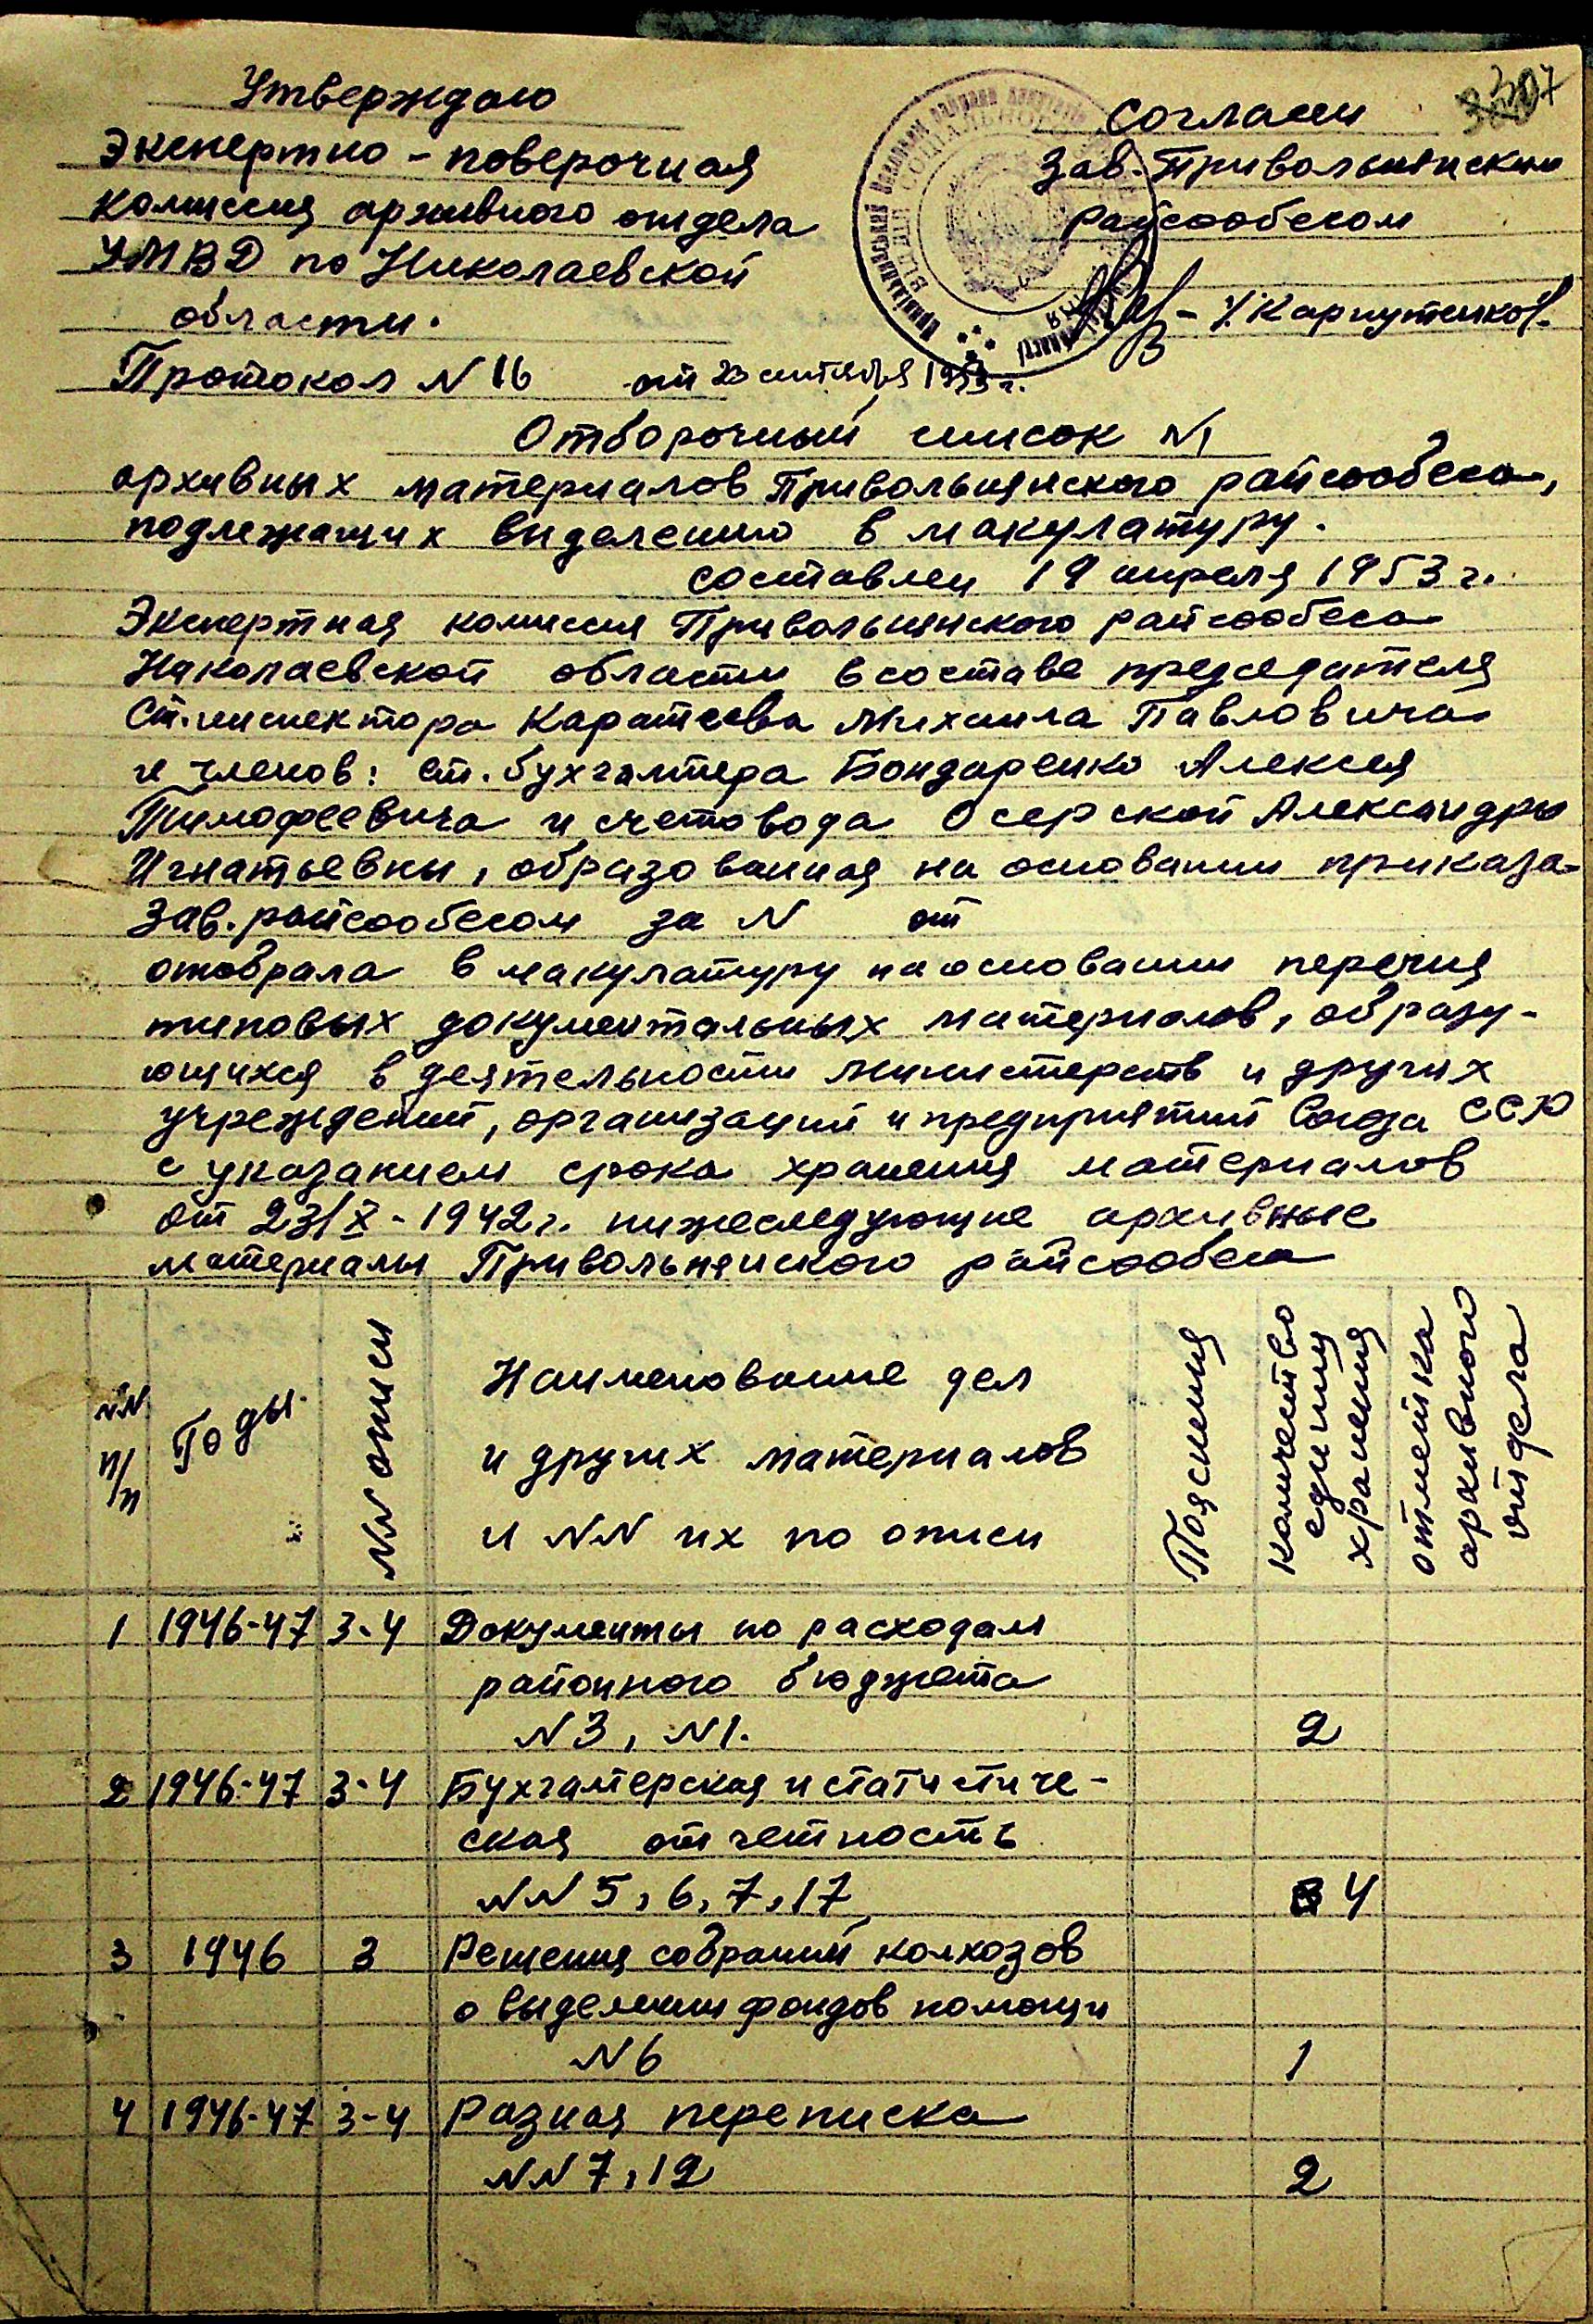 Утверждаю
Экспертно-поверочная
комиссия архивного отдела
УМВД по Николаевской
области.
Протокол N 16 от 23 сентября 1953 г.
Согласен
Зав. Привольнянским
райсообесом
307
Отборочный список N1
архивных материалов Привольнянского райсообеса,
подлежащих выделению в макулатуру.
составлен 19 апреля 1953 г.
Экспертная комиссия Привольнянского райсообеса
Николаевской области в составе председателя
Ст. инспектора Михаила Павловича
и членов: ст. бухгалтера Бондаренко Алексея
Тимофеевича и счетовода Осерской Александры
Игнатьевны, образованная на основании приказа
Зав. райсообесом за N от
отобрала в макулатуру на основании перечня
типовых документальных материалов, образу-
ющихся в деятельности министерств и других
учреждений, организаций и предприятий Союза ССР
с указанием срока хранения материалов
от 23/X-1942 г. нижеследующие архивные
материалы Привольнянского райсообеса
NN п/п
Годы.
NN описи
Наименование дел
и других материалов
и NN их по описи
Пояснения
Количество единиц хранения
отметка архивного отдела
1 1946-47 3-4 Документы по расходам
районного бюджета
N3, N1. 2
2 1946-47 3-4 Бухгалтерская и статистиче-
ская отчетность
NN 5, 6, 7, 17 4
3 1946 3 Решения собраний колхозов
о выделении фондов помощи
N6 1
4 1946-47 3-4 Разная переписка
NN 7, 12 2